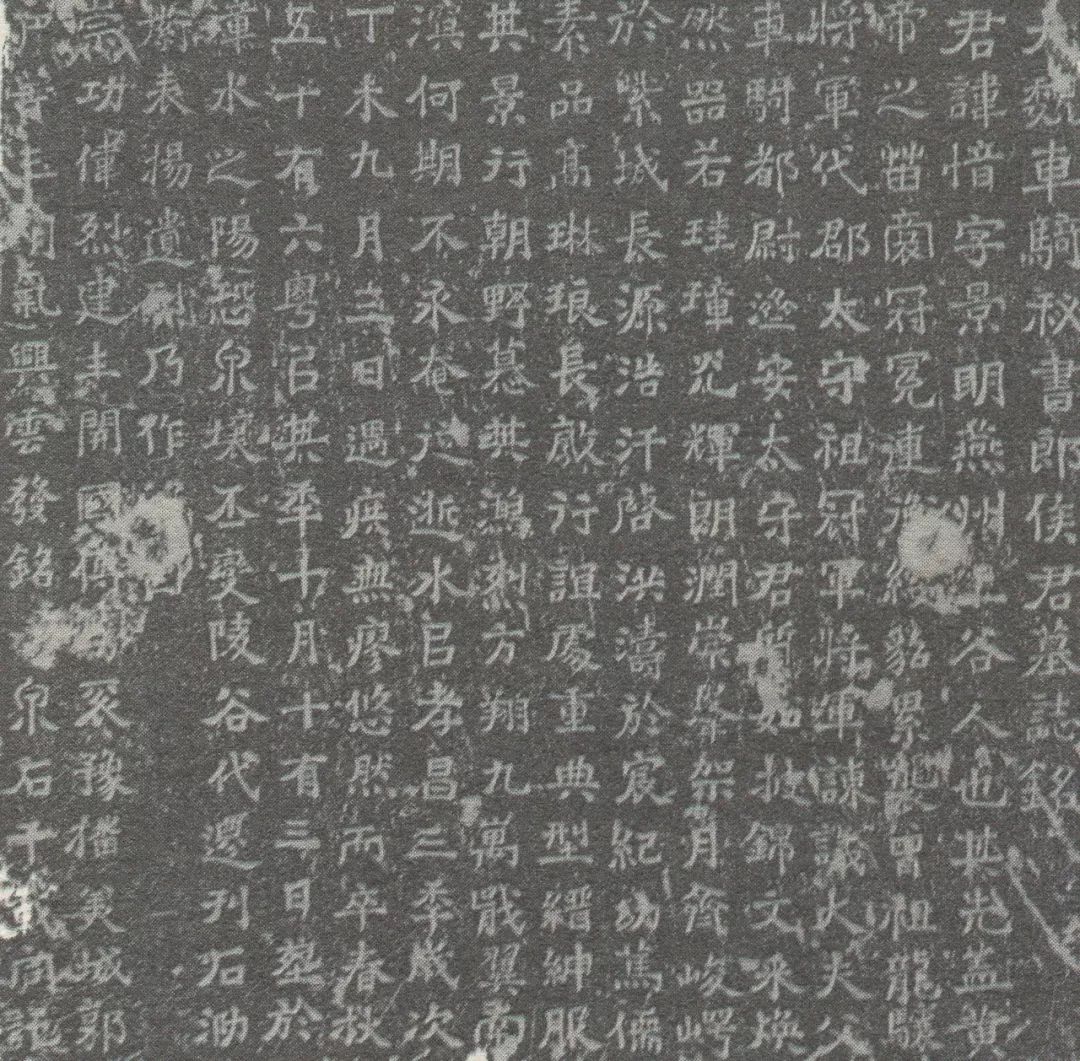 大魏車騎秘書郎侯君墓誌銘
君諱愔字景明燕州上谷人也其先蓋黃
帝之苗裔冠冕連光貂累襲曾祖龍驤
將軍代郡太守祖冠軍將軍諫議大夫父
車騎都尉安太守君質如披錦文來煥
然器若珪璋光輝朗潤崇峯架月齊峻崿
於紫城長源浩汗啓洪濤於宸紀幼蔦儒
素品高琳琅長敲行誼處重典型縉紳服
其景行朝野慕其鴻剬方翔九萬戢翼南
溟何期不永奄從逝水以孝昌三季歲次
丁未九月三日遇疾無瘳悠然而卒春秋
五十有六粵以其年十月十有三日塟於
渾水之陽恐泉壤丕變陵谷代遷刊石泐
表揚遺乃作
崇功偉烈建圭開國豫播美城郭
氣興雲發銘泉石千同